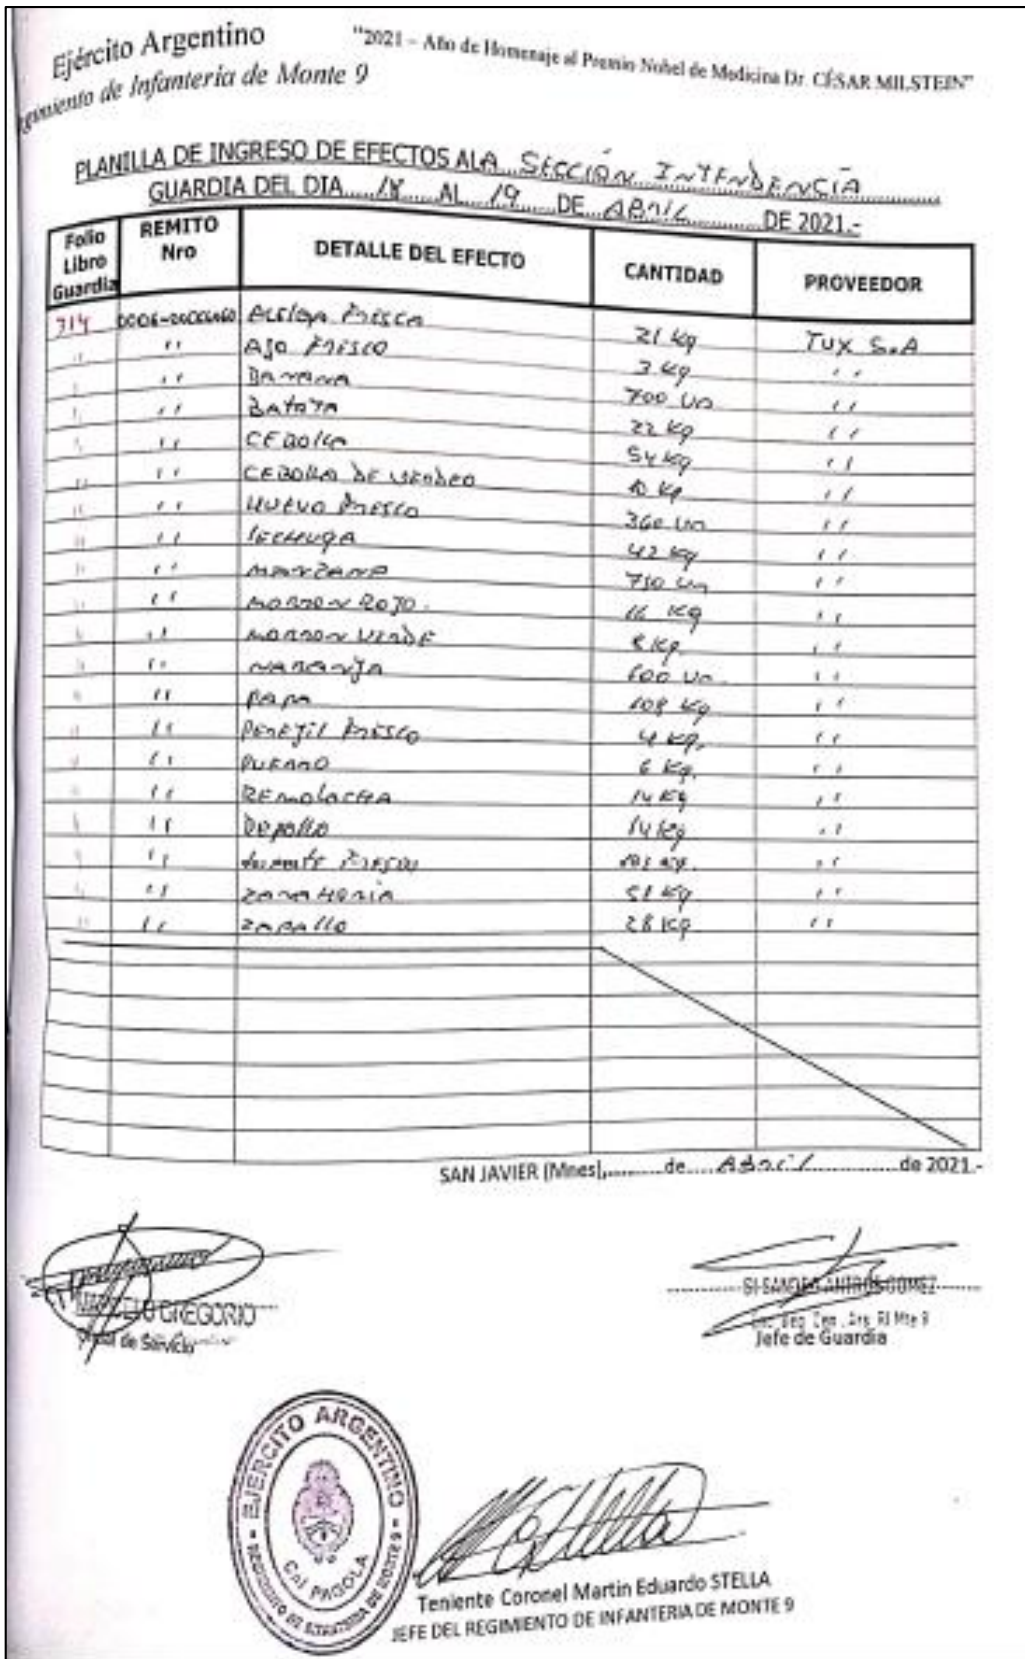 Ejército Argentino
"2021 – Año de Homenaje al Premio Nobel de Medicina Dr. CÉSAR MILSTEIN"
gimiento de Infantería de Monte 9
PLANILLA DE INGRESO DE EFECTOS A LA SECCIÓN INTENDENCIA
GUARDIA DEL DIA 18 AL 19 DE ABRIL DE 2021.-
Folio Libro Guardia REMITO Nro DETALLE DEL EFECTO CANTIDAD PROVEEDOR
314 ACELGA FRESCA 21 Kg TUX S.A
" " AJO FRESCO 3 Kg "
" " BANANA 700 Un "
" " BATATA 22 Kg "
" " CEBOLLA 54 Kg "
" " CEBOLLA DE VERDEO 10 Kg "
" " HUEVO FRESCO 360 Un "
" " LECHUGA 42 Kg "
" " MANZANA 750 Un "
" " MORRON ROJO. 16 Kg "
" " MORRON VERDE 8 Kg. "
" " NARANJA 600 Un. "
" " PAPA 108 Kg "
" " PEREJIL FRESCO 4 Kg. "
" " PUERRO 6 Kg. "
" " REMOLACHA 14 Kg "
" " REPOLLO 14 Kg "
" " FRESCO Kg. "
" " ZANAHORIA 51 Kg "
" " ZAPALLO 28 Kg "
SAN JAVIER (Mnes), de Abril de 2021.-
GREGORIO
de Servicio
SI SANDRO GOMEZ
RI Mte 9
Jefe de Guardia
EJERCITO ARGENTINO
REGIMIENTO DE INFANTERIA DE MONTE 9
CNL PAGOLA
Teniente Coronel Martin Eduardo STELLA
JEFE DEL REGIMIENTO DE INFANTERIA DE MONTE 9